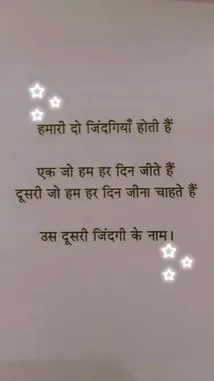 हमारी दो जिंदगियाँ होती हैं
एक जो हम हर दिन जीते हैं
दूसरी जो हम हर दिन जीना चाहते हैं
उस दूसरी जिंदगी के नाम।